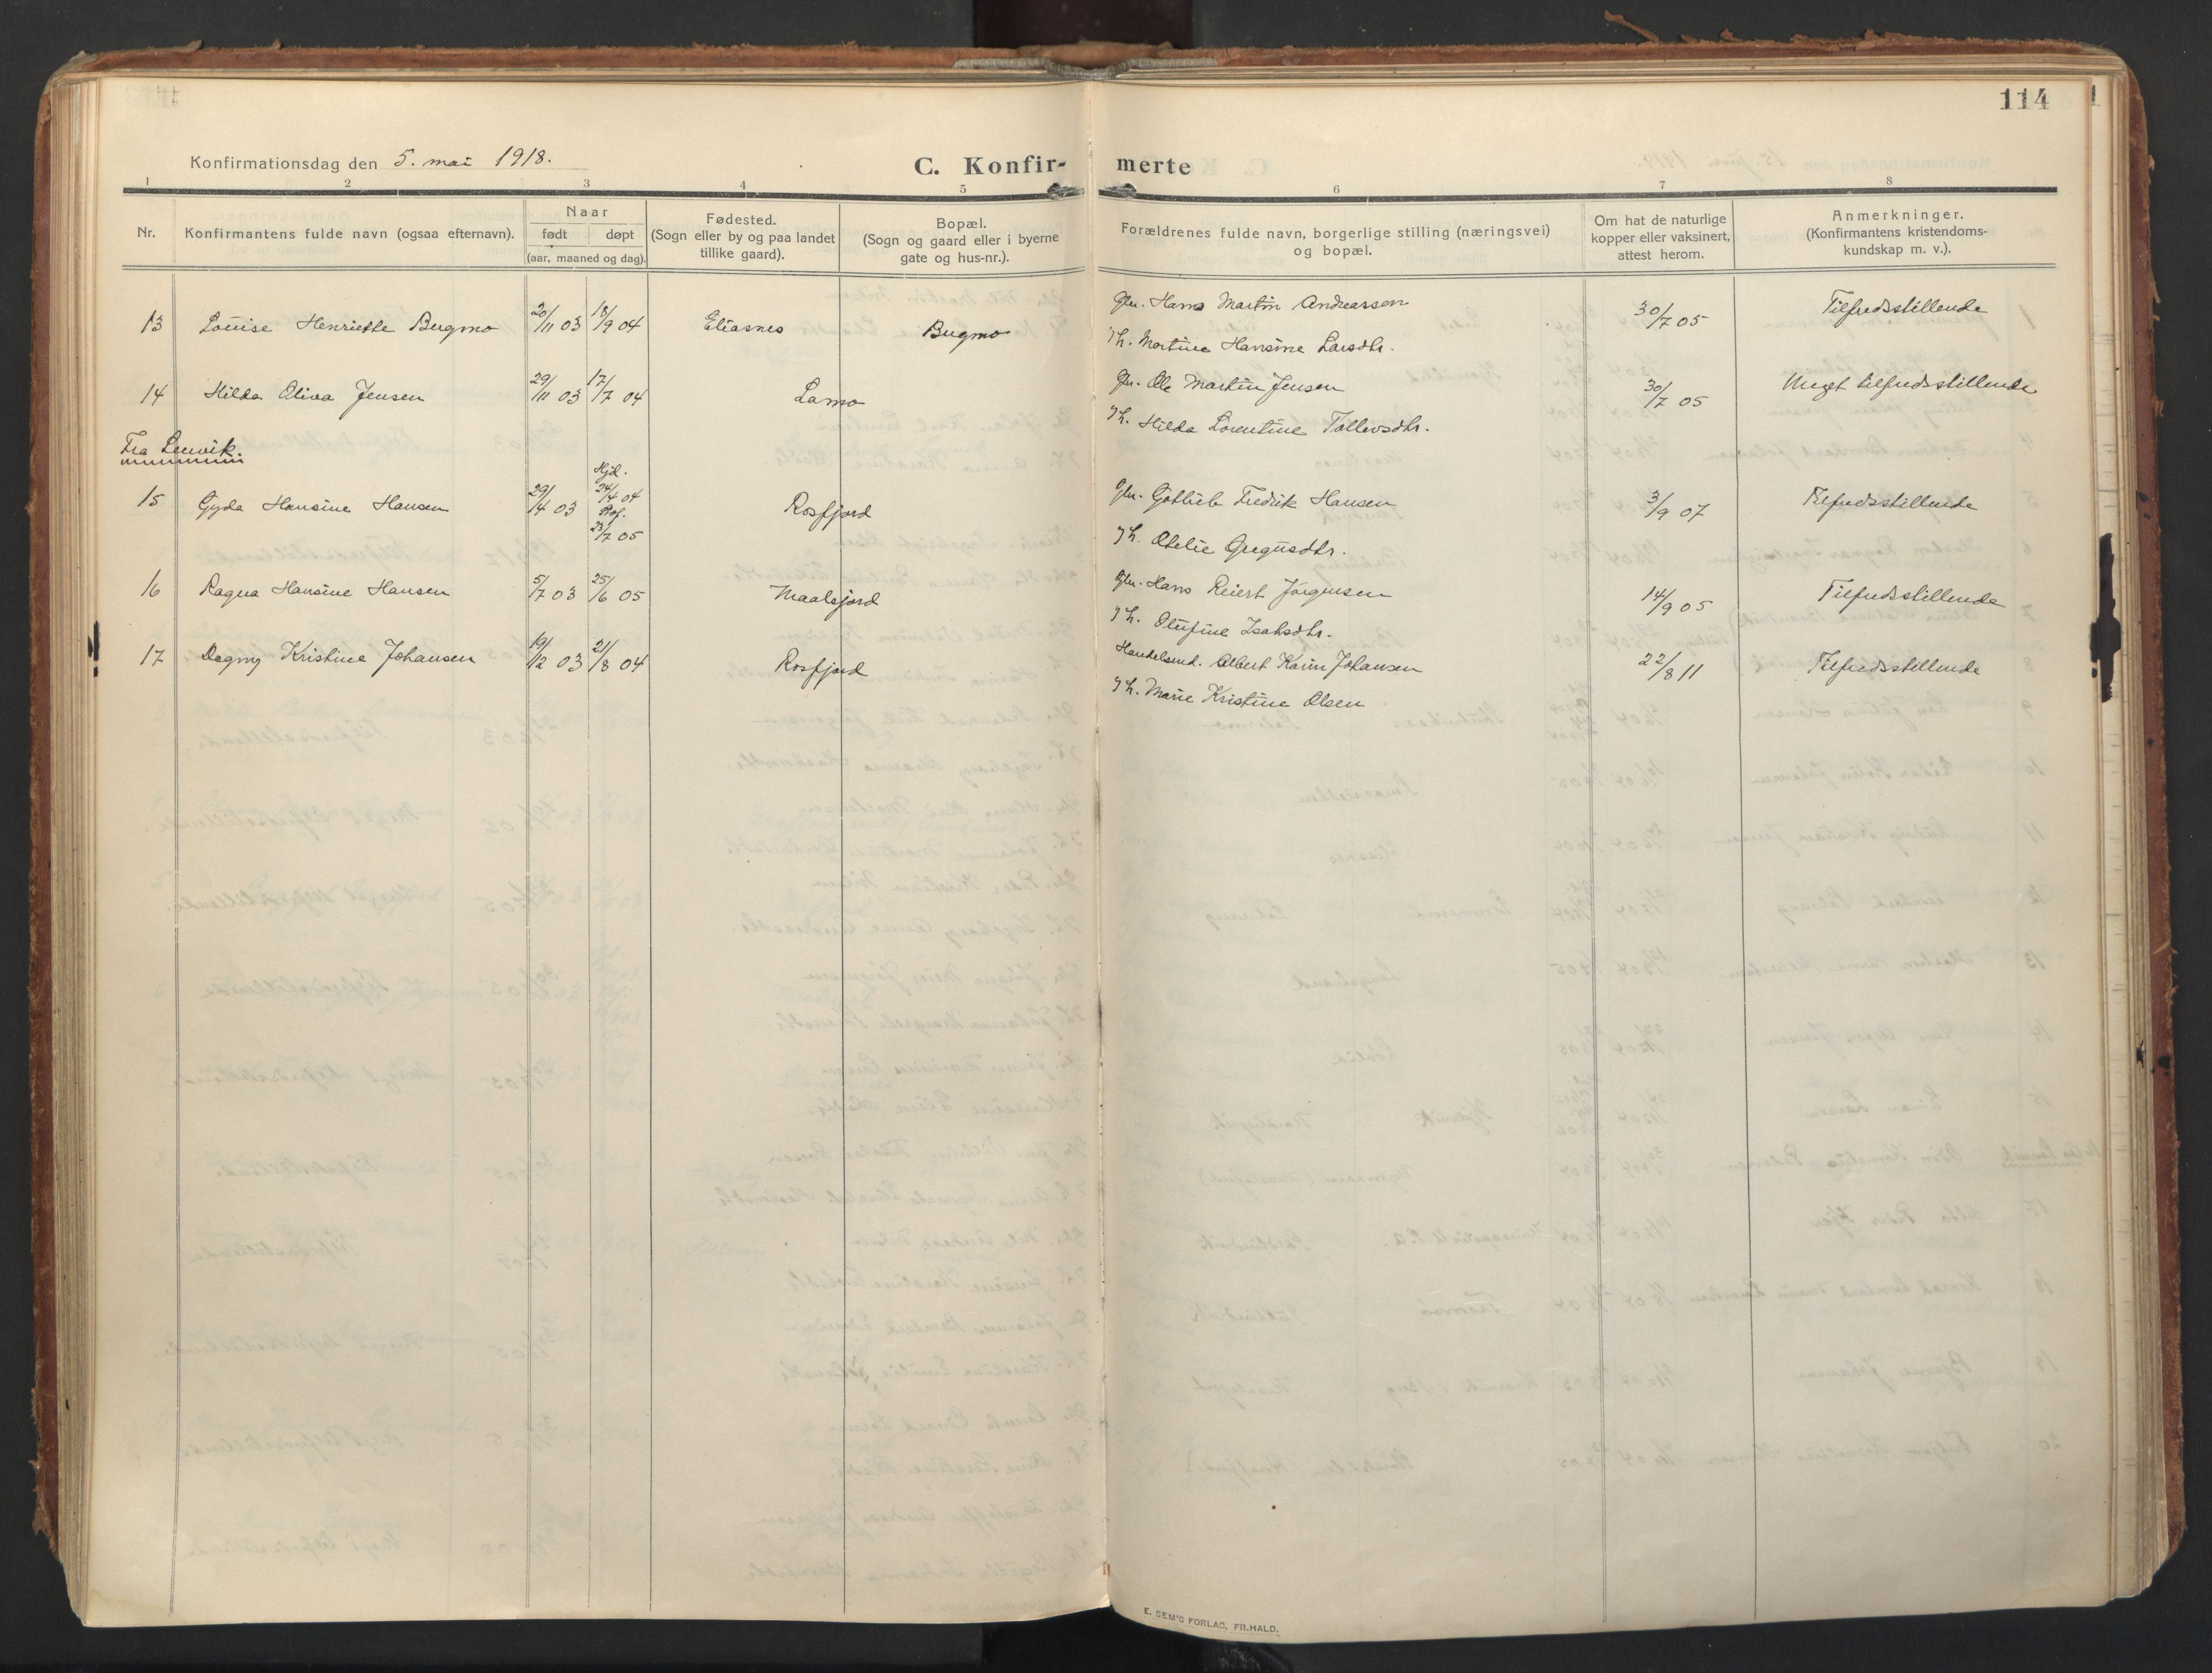 114
Konfirmationsdag den 5. mai 1918.
C. Konfir- merte
1 2 3 4 5 6 7 8
Nr.
Konfirmantens fulde navn (ogsaa efternavn).
Naar
født døpt
(aar, maaned og dag).
Fødested.
(Sogn eller by og paa landet
tillike gaard).
Bopæl.
(Sogn og gaard eller i byerne
gate og hus-nr.).
Forældrenes fulde navn, borgerlige stilling (næringsvei)
og bopæl.
Om hat de naturlige
kopper eller vaksinert,
attest herom.
Anmerkninger.
(Konfirmantens kristendoms-
kundskap m. v.).
13 Louise Henriette Bugmo 20/11 03 18/9 04 Eliasnes Bugmo Gbr. Hans Martin Andreassen 30/7 05 Tilfredsstillende
Martine Hansine Larsdtr.
14 Hilda Oliva Jensen 29/11 03 17/7 04 Lamo Gbr. Ole Martin Jensen 30/7 05 Meget tilfredsstillende
Hilda Lorentine Tollevsdtr.
Fra Lenvik.
15 Gyda Hansine Hansen 29/4 03 Hjd. 24/4 04 23/7 05 Rosfjord Gbr. Gotlieb Fredrik Hansen 3/9 07 Tilfredsstillende
Otelie Gregusdtr.
16 Ragna Hansine Hansen 5/7 03 25/6 05 Maalsjord Gbr. Hans Reiert Jörgensen 14/9 05 Tilfredsstillende
Olufine Isaksdtr.
17 Dagny Kristine Johansen 19/12 03 21/8 04 Rosfjord Handelsmd. Albert Karin Johansen 22/8 11 Tilfredsstillende
Marie Kristine Olsen
E. SEM'S FORLAG, FR.HALD.